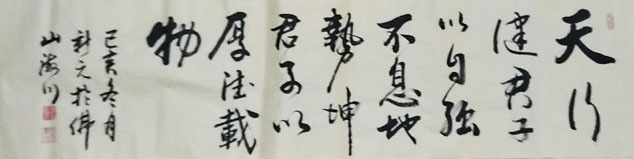 天行
健君子
以自强
不息地
勢坤
君子以
厚德載
物
己亥冬月
新元於佛
山海川